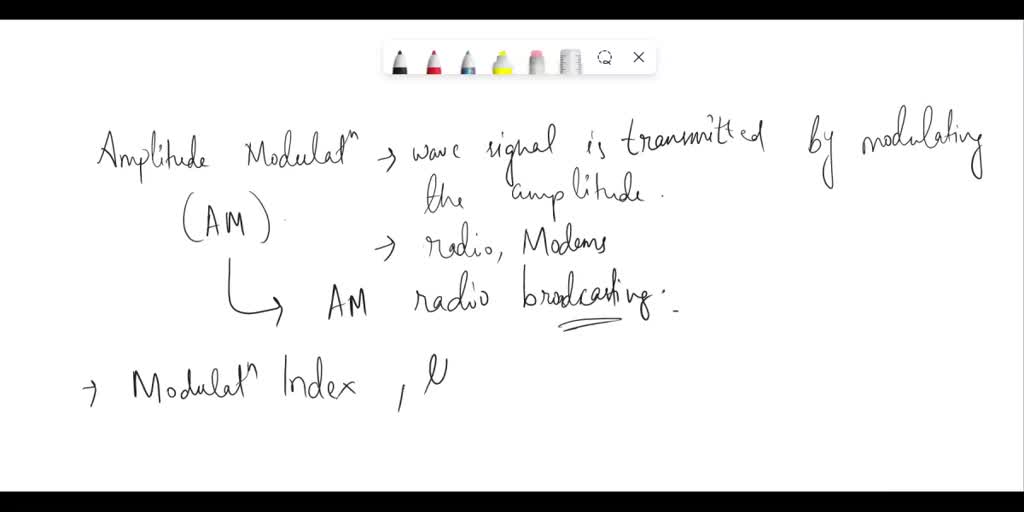 Amplitude Modulatⁿ → wave signal is transmitted by modulating
the amplitude.
(AM)
→ radio, Modems
↳ AM radio brodcasting.
→ Modulatⁿ Index,